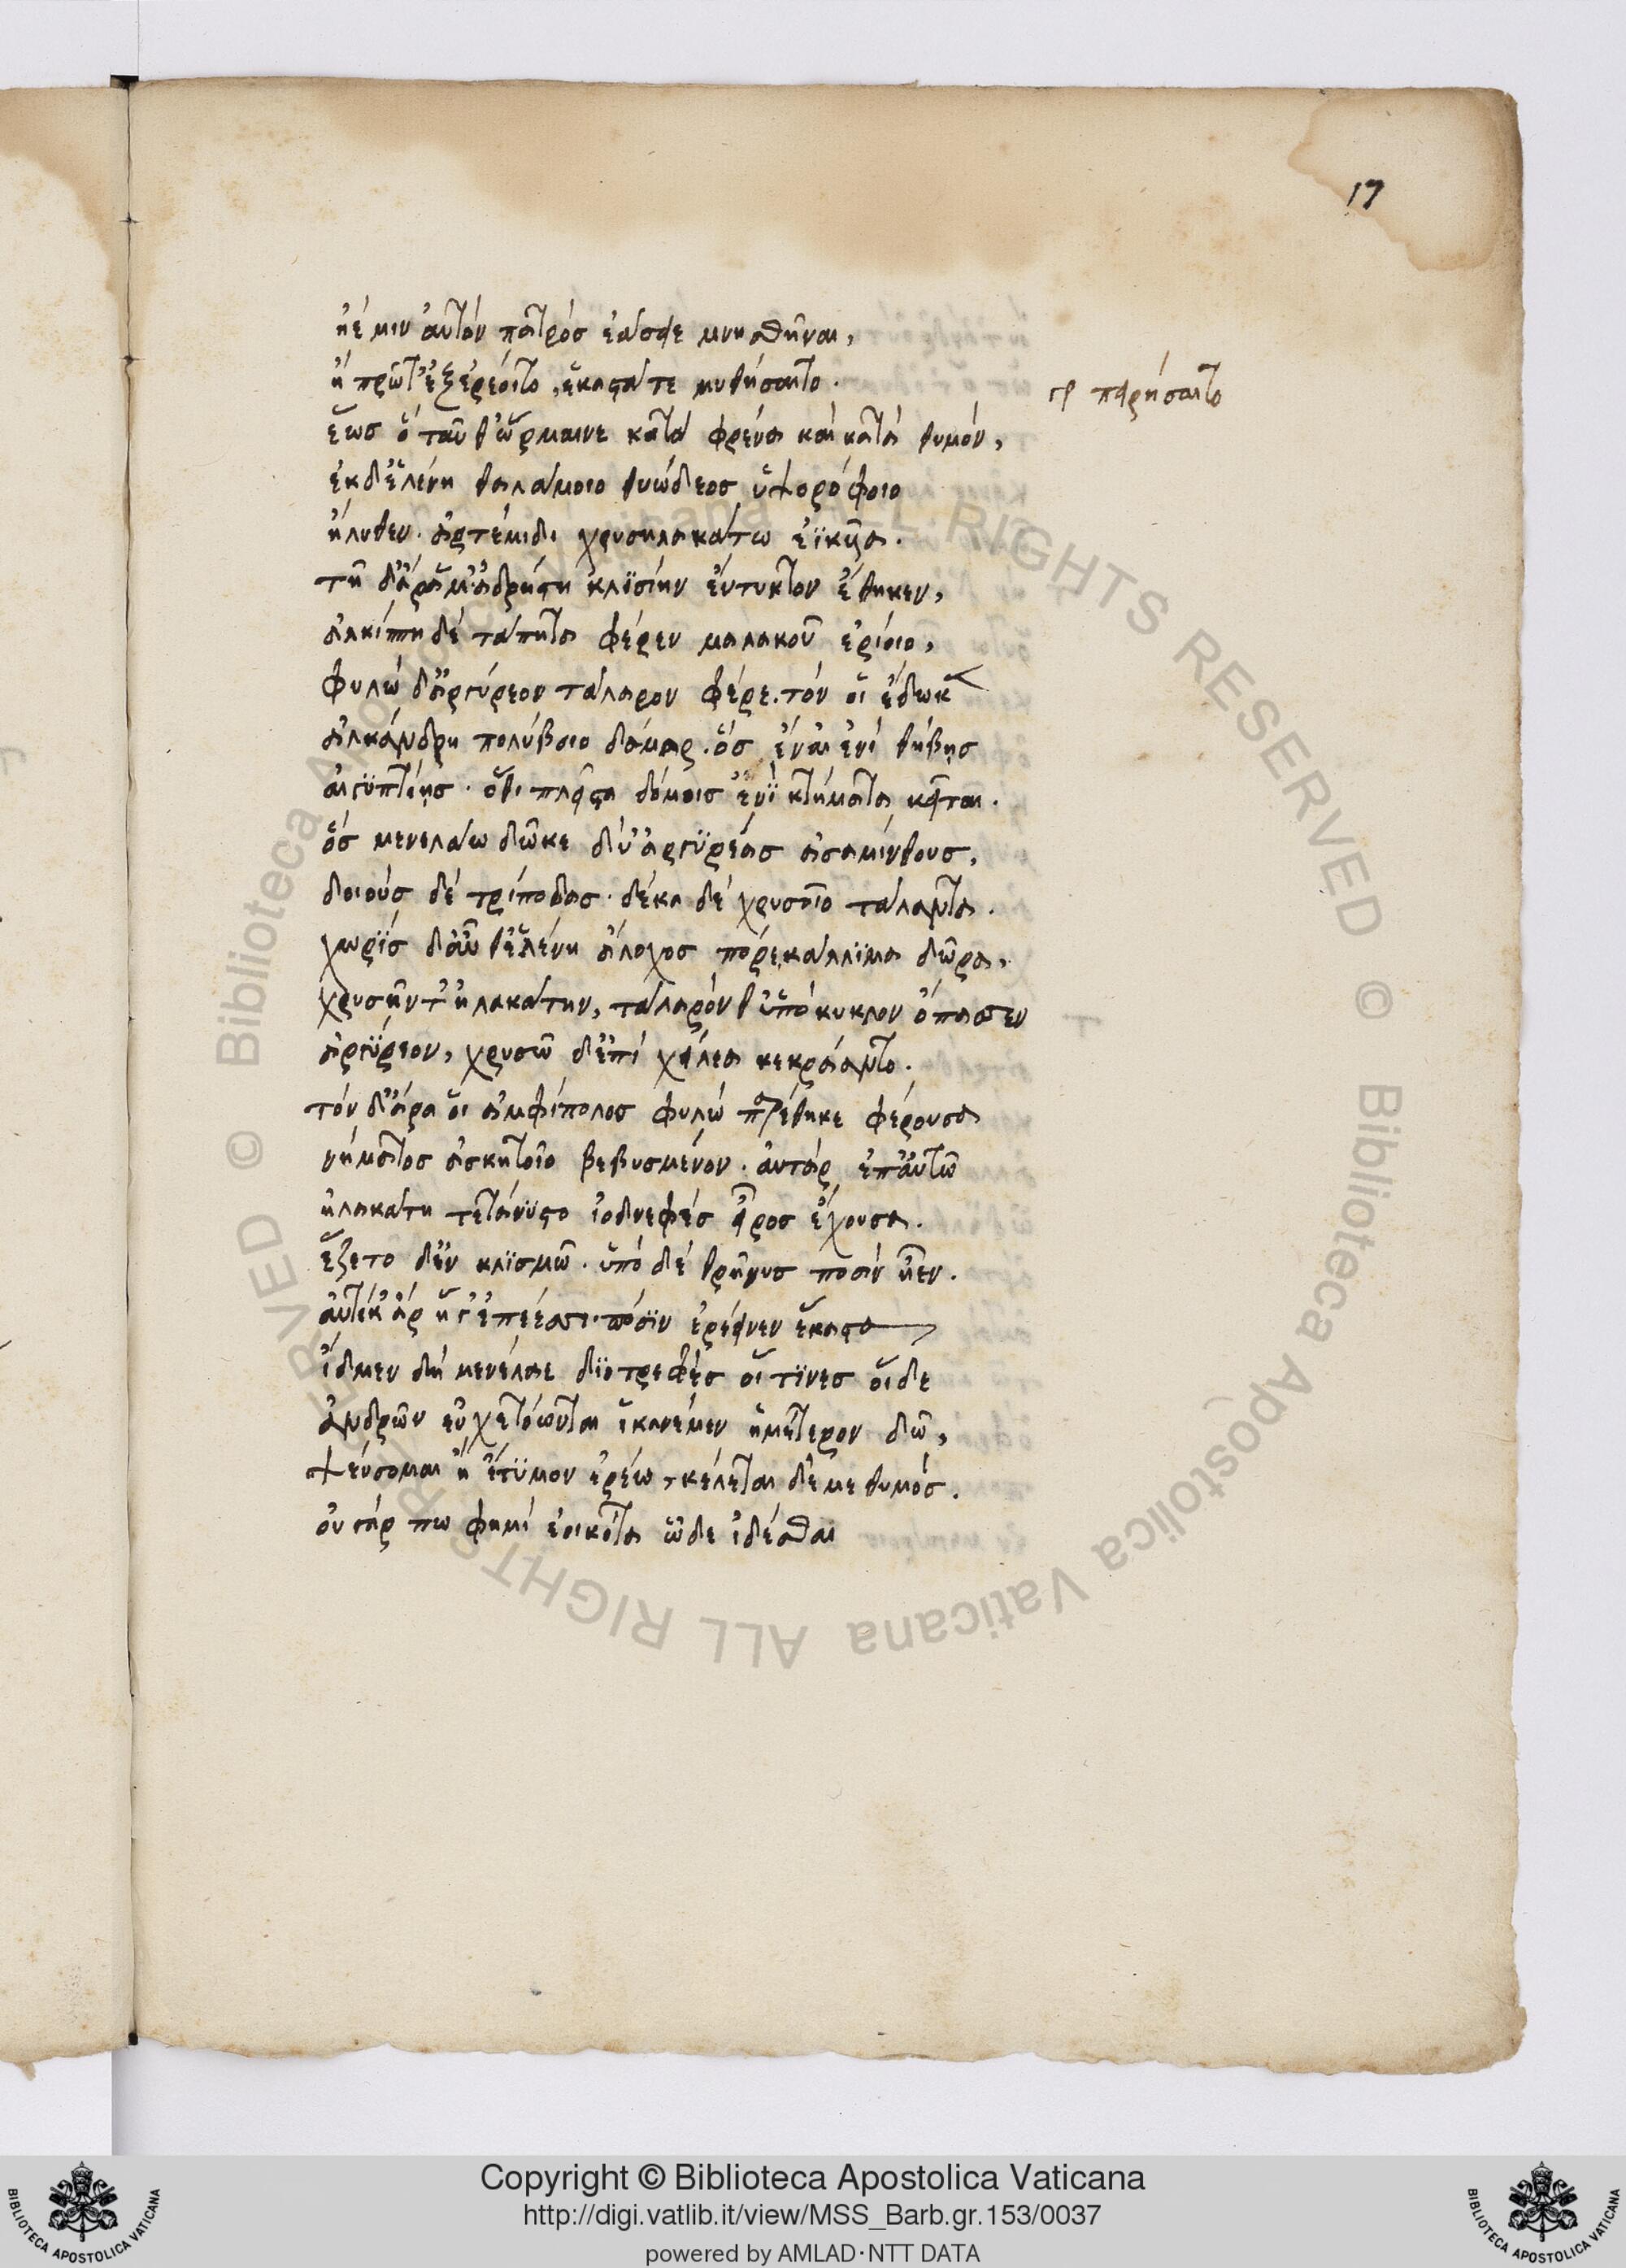 17
ἠέ μιν ἀυτὸν πατρὸσ ἐάσειε μνησθῆναι,
ἢ πρῶτ' ἐξερέοιτο, ἕκαστά τε μυθήσαιτο.
γρ πειρήσαιτο
ἕωσ ὁ ταῦθ' ὥρμαινε κατὰ φρένα καὶ κατὰ θυμόν,
ἐκ δ' ἑλένη θαλάμοιο θυώδεοσ ὑψορόφοιο
ἤλυθεν. ἀρτέμιδι χρυσηλακάτω ἐϊκυῖα.
τῆ δ' ἄρ' ἅμ' ἀδρήστη κλϊσίην ἐύτυκτον ἔθηκεν,
ἀλκίππη δὲ τάπητα φέρεν μαλακοῦ ἐρίοιο,
φυλὼ δ' ἀργύρεον τάλαρον φέρε. τόν οἱ ἔδωκεν
ἀλκάνδρη πολύβοιο δάμαρ. ὃσ ἔναι' ἐνὶ θήβησ
αἰγϋπτίησ. ὅθι πλεῖστα δόμοισ ἐνὶ κτήματα κεῖται.
ὃσ μενελάω δῶκε δύ' ἀργϋρέασ ἀσαμίνθουσ,
δοιοὺσ δὲ τρίποδασ. δέκα δὲ χρυσοῖο τάλαντα.
χωρϊσ δ' αὖθ' ἑλένη ἄλοχοσ πόρε καλλϊμα δῶρα,
χρυσῆν τ' ἠλακάτην, τάλαρόν θ' ὑπόκυκλον ὄπασσεν
ἀργϋρεον, χρυσῶ δ' ἐπὶ χείλεα κεκράαντο.
τόν δ' ἄρα οἱ ἀμφίπολοσ φυλὼ παρέθηκε φέρουσα
νήματοσ ἀσκητοῖο βεβυσμένον. ἀυτὰρ ἐπ' ἀυτῶ
ἠλακάτη τετάνϋστο ἰοδνεφὲσ εἶροσ ἔχουσα.
ἕζετο δ' ἐν κλϊσμῶ. ὑπὸ δὲ θρῆνυσ ποσὶν ἦεν.
ἀυτίκ' ἄρ' ἥγ' ἐπέεσσι πόσϊν ἐρέεινεν ἕκαστα
ἴδμεν δὴ μενέλαε δϊοτρεφὲσ οἵ τϊνεσ οἵδε
ἀνδρῶν εὐχετόωνται ἱκανέμεν ἡμέτερον δῶ,
ψεύσομαι ἢ ἔτϋμον ἐρέω, κέλεται δέ με θυμόσ.
οὐ γάρ πω φημὶ ἐοικότα ὧδε ἰδέσθαι
© Biblioteca Apostolica Vaticana ALL RIGHTS RESERVED © Biblioteca Apostolica Vaticana ALL RIGHTS RESERVED
Copyright © Biblioteca Apostolica Vaticana
http://digi.vatlib.it/view/MSS_Barb.gr.153/0037
powered by AMLAD·NTT DATA
BIBLIOTECA APOSTOLICA VATICANA
BIBLIOTECA APOSTOLICA VATICANA